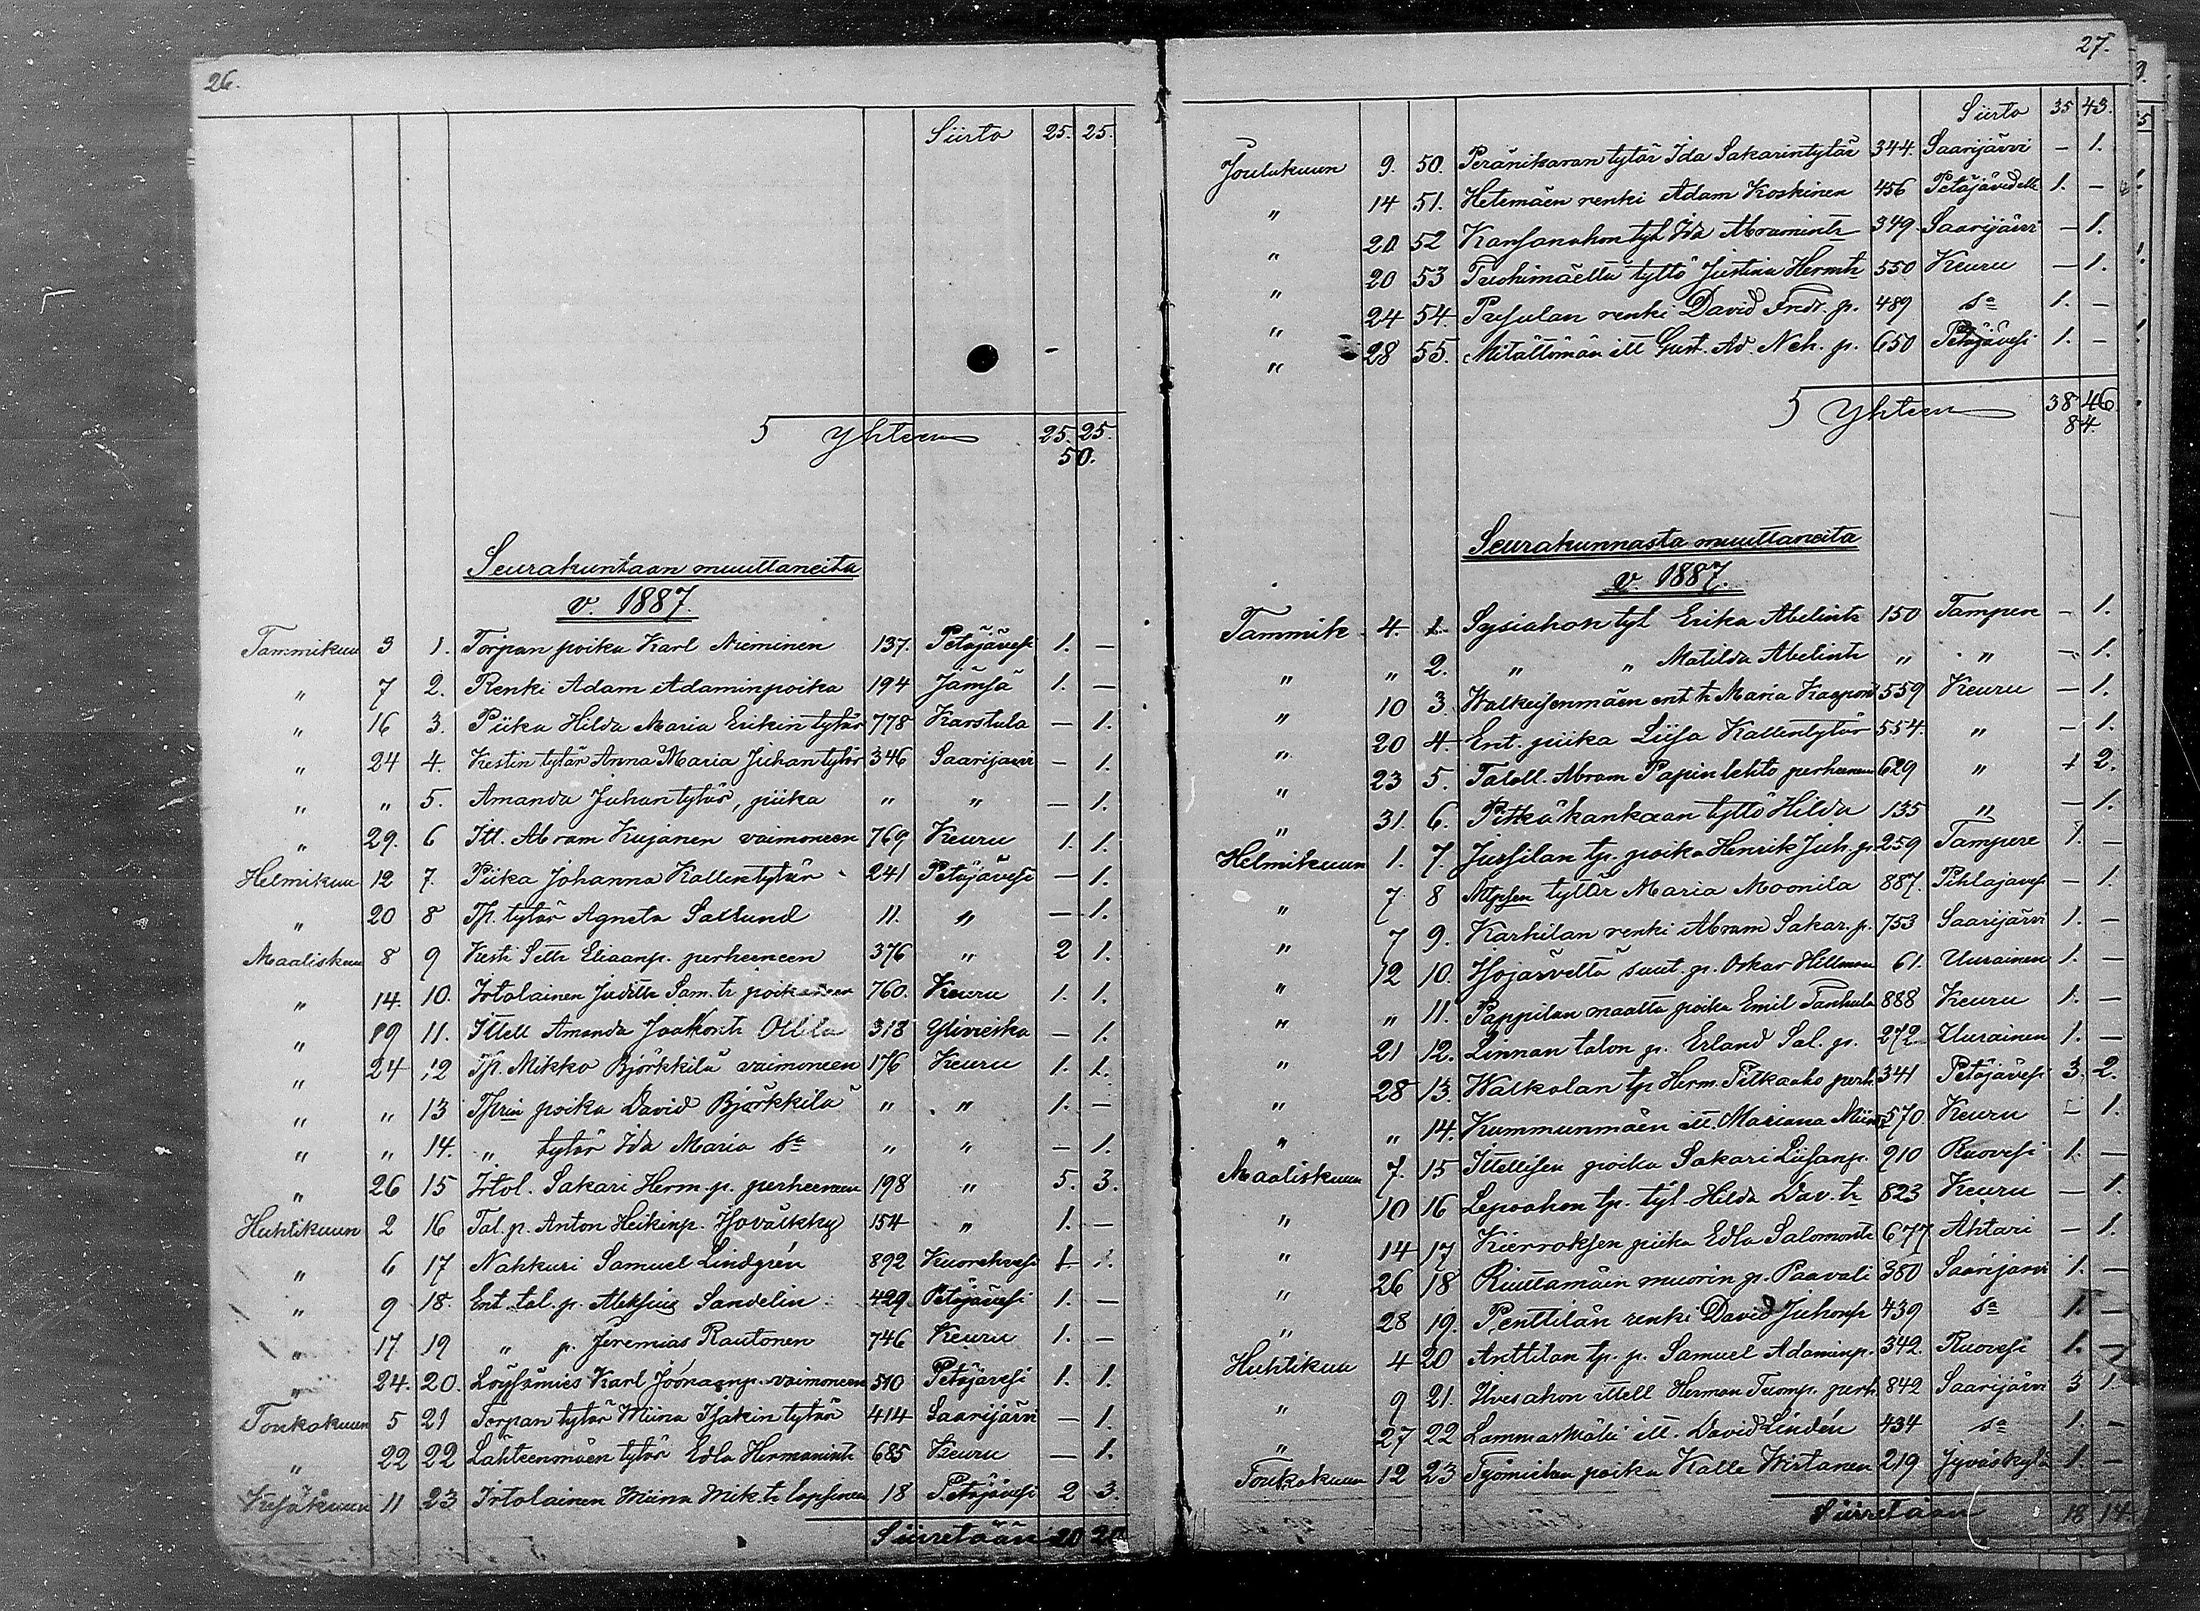 26.
Siirto 25. 25.
5 Yhteen 25. 25.
50.
Seurakuntaan muuttaneita
v. 1887.
Tammikuu 3 1. Torpan poika Karl Nieminen 137. Petäjävesi 1. —
" 7 2. Renki Adam Adaminpoika 194 Jämsä 1. —
" 16 3. Piika Hilda Maria Erikin tytär 778 Karstula — 1.
" 24 4. Kestin tytär Anna Maria Juhan tytär 346 Saarijärvi — 1.
" " 5. Amanda Juhantytär, piika " " — 1.
" 29. 6 Itl. Abram Kujanen vaimoneen 769 Keuru 1. 1.
Helmikuu 12 7. Piika Johanna Kallentytär 241 Petäjävesi — 1.
" 20 8 Tp. tytär Agneta Sallund 11. " — 1.
Maaliskuu 8 9 Kesti Seth Eliaanp. perheineen 376 " 2 1.
" 14. 10. Irtolainen Judith Sam. tr poikaneen 760. Keuru 1. 1.
" 19 11. Ittell Amanda Jaakontr Ollila 318 Ylivieska — 1.
" 24 12 Tp. Mikko Björkkilä vaimoneen 176 Keuru 1. 1.
" " 13 Tprin poika David Björkkilä " " 1. —
" " 14. " tytär Ida Maria sa " " — 1.
" 26 15 Irtol. Sakari Herm. p. perheineen 198 " 5. 3.
Huhtikuun 2 16 Tal. p. Anton Heikinp. Isovälkky 154 " 1. —
" 6 17 Nahkuri Samuel Lindgrén 892 Kuorehvesi 1
" 9 18. Ent. tal. p. Aleksius Sandelin 429 Petäjävesi 1. —
" 17. 19 " p. Jeremias Rautonen 746 Keuru 1. —
" 24. 20. Löysämies Karl Joonaanp. vaimoneen 510 Petäjävesi 1. 1.
Toukokuun 5 21 Torpan tytär Miina Isakin tytär 414 Saarijärvi — 1.
" 22 22 Lähteenmäen tytär Edla Hermanintr 685 Keuru — 1.
Kesäkuun 11 23 Irtolainen Miina Mik. tr lapsineen 18 Petäjävesi 2 3.
Siirretään 20 20
27.
Siirto 35 43.
Joulukuun 9. 50. Peränikaran tytär Ida Sakarintytär 344. Saarijärvi — 1.
" 14 51. Hetemäen renki Adam Koskinen 456 Petäjävedelle 1. —
" 20 52 Kansanahon tyt Ida Abramintr 349 Saarijärvi — 1.
" 20 53 tyttö Justina Hermtr 550 Keuru — 1.
" 24 54. renki David Fredr. p. 489 sa 1. —
" 28 55. Mitättömän itl Gust. Ad. Neh. p. 650 Petäjävesi 1. —
5 Yhteen 38 46.
84.
Seurakunnasta muuttaneita
v. 1887.
Tammik 4. 1. Sysiahon tyt Erika Abelintr 150 Tampere — 1.
" " 2. " " Matilda Abelintr " " — 1.
" 10 3. ent. tr Maria 559 Keuru — 1.
" 20 4. Ent. piika Liisa Kallentytär 554. " — 1.
" 23 5. Taloll. Abram Papinlehto perheineen 629 " 1 2.
" 31. 6. Pitkäkankaan tyttö Hilda 135 " — 1.
Helmikuun 1. 7. Jussilan tp. poika Henrik Juh. p. 259 Tampere 1. —
" 7 8 tytär Maria Moonila 887. Pihlajavesi — 1.
" 7 9. Karhilan renki Abram Sakar. p. 753 Saarijärvi 1. —
" 12 10. Isojärveltä suut. p. Oskar Hillman 61. Uurainen 1. —
" " 11. Pappilan maalta poika Emil Tanhula 888 Keuru 1. —
" 21 12. Linnan talon p. Erland Sal. p. 272 Uurainen 1. —
" 28 13. Walkolan tp Herm. Pitkäaho perh. 341 Petäjävesi 3. 2.
" " 14. Kummunmäen itl. Mariana 570. Keuru — 1.
Maaliskuun 7. 15 Ittellisen poika Sakari Liisanp. 910 Ruovesi 1. —
" 10 16 Lepoahon tp. tyt Hilda Dav. tr 823 Keuru — 1.
" 14 17 Kierroksen piika Edla Salomontr 677 Ähtäri — 1.
" 26 18 Riuttamäen muorin p. Paavali 380 Saarijärvi 1. —
" 28 19. Penttilän renki David Juhonp 439 sa 1. —
Huhtikuu 4 20 Anttilan tp. p. Samuel Adaminp. 342. Ruovesi 1. —
" 9 21. Ilvesahon ittell Herman Tuomp. perh. 842 Saarijärvi 3 1.
" 27 22 itl. David Lindén 434 sa 1. —
Toukokuun 12 23 Työmiehen poika Kalle Wirtanen 219 Jyväskylä 1. —
Siirretään 18 14.